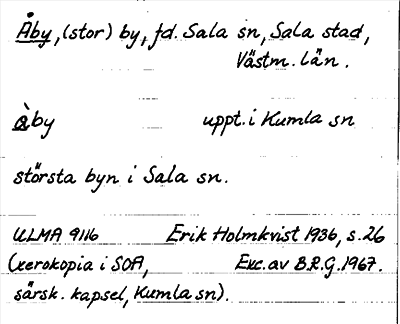 Åby, (stor) by, fd. Sala sn, Sala stad,
Västm. län.
àby uppt. i Kumla sn
största byn i Sala sn.
ULMA 9116 Erik Holmkvist 1936, s. 26
(xerokopia i SOA, Exc. av B.R.G. 1967.
särsk. kapsel, Kumla sn).